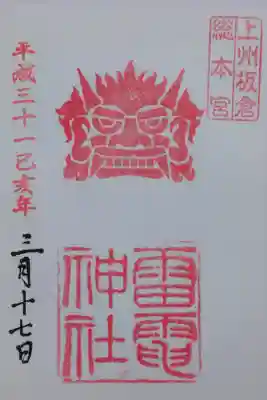 上州板倉
総本宮
雷電
神社
平成三十一己亥年
三月十七日